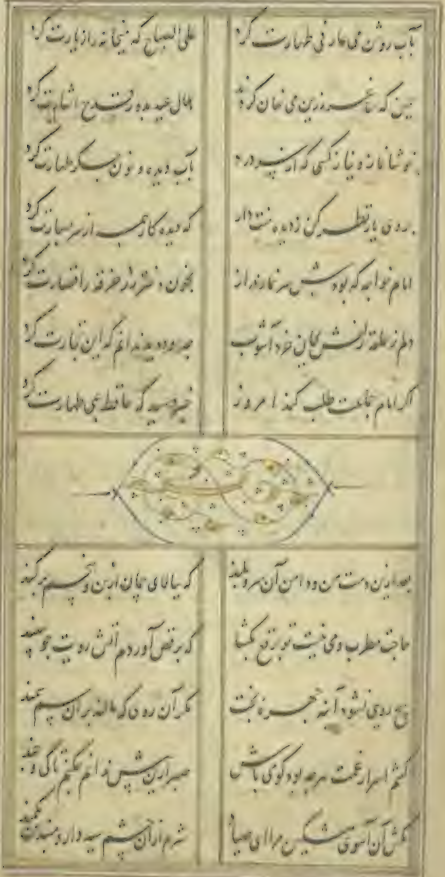 بآب روشن می عارفی طهارت کرد علی الصباح که میخانه را زیارت کرد
همین که ساغر زرین می نهان کردند هلال عید بدور قدح اشارت کرد
خوشا نماز و نیاز کسی که از سر درد بآب دیده و خون جگر طهارت کرد
بروی یار نظر کن ز دیده منت دار که دیده کار همه از سر بصارت کرد
امام خواجه که بودش سر نماز دراز بخون دختر رز خرقه را قصارت کرد
دلم ز حلقه زلفش بجان خرید آشوب چه سود دید ندانم که این تجارت کرد
اگر امام جماعت طلب کند امروز خبر دهید که حافظ بمی طهارت کرد
بعد ازین دست من و دامن آن سرو بلند که ببالای چمان از بن و بیخم برکند
حاجت مطرب و می نیست تو برقع بگشا که برقص آوردم آتش رویت چو سپند
هیچ رویی نشود آینه حجره بخت مگر آن روی که مالند بر آن سم سمند
گفتم اسرار غمت هرچه بود گو می باش صبر ازین بیش ندارم چکنم تا کی و چند
مکش آن آهوی مشکین مرا ای صیاد شرم از آن چشم سیه دار و مبندش بکمند